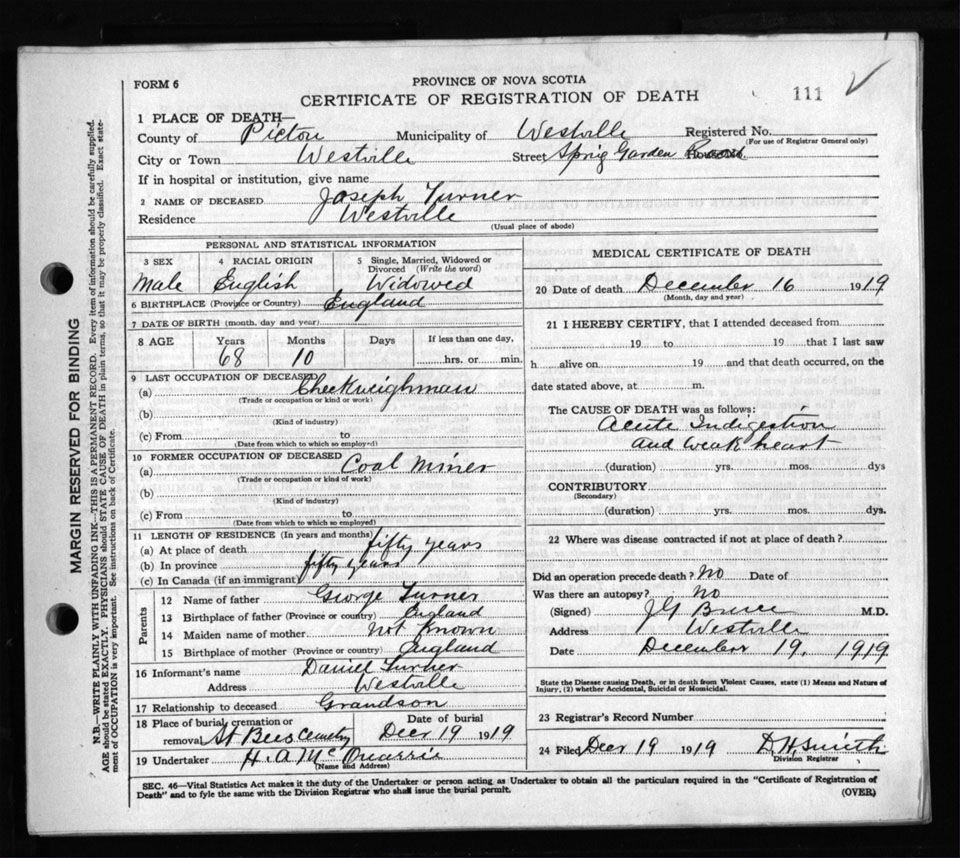 FORM 6
PROVINCE OF NOVA SCOTIA
CERTIFICATE OF REGISTRATION OF DEATH
111
1 PLACE OF DEATH—
County of Pictou Municipality of Westville Registered No.
(For use of Registrar General only)
City or Town Westville Street Sprig Garden
If in hospital or institution, give name
2 NAME OF DECEASED Joseph Turner
Residence Westville
(Usual place of abode)
PERSONAL AND STATISTICAL INFORMATION
3 SEX 4 RACIAL ORIGIN 5 Single, Married, Widowed or Divorced (Write the word)
Male English Widowed
6 BIRTHPLACE (Province or Country) England
7 DATE OF BIRTH (month, day and year)
8 AGE Years Months Days If less than one day,
68 10 hrs. or min.
9 LAST OCCUPATION OF DECEASED
(a) Checkweighman
(Trade or occupation or kind or work)
(b)
(Kind of industry)
(c) From to
(Date from which to which so employed)
10 FORMER OCCUPATION OF DECEASED
(a) Coal Miner
(Trade or occupation or kind of work)
(b)
(Kind of industry)
(c) From to
(Date from which to which so employed)
11 LENGTH OF RESIDENCE (In years and months)
(a) At place of death fifty years
(b) In province fifty years
(c) In Canada (if an immigrant)
Parents
12 Name of father George Turner
13 Birthplace of father (Province or country) England
14 Maiden name of mother not Known
15 Birthplace of mother (Province or country) England
16 Informant's name Daniel Turner
Address Westville
17 Relationship to deceased Grandson
18 Place of burial, cremation or removal St Bees Cemetry Date of burial Decr 19 1919
19 Undertaker H. A. McQuarrie
(Name and Address)
MEDICAL CERTIFICATE OF DEATH
20 Date of death December 16 1919
(Month, day and year)
21 I HEREBY CERTIFY, that I attended deceased from
19 to 19 that I last saw
h alive on 19 and that death occurred, on the
date stated above, at m.
The CAUSE OF DEATH was as follows:
Acute Indigestion
and weak heart
(duration) yrs. mos. dys
CONTRIBUTORY
(Secondary)
(duration) yrs. mos. dys.
22 Where was disease contracted if not at place of death?
Did an operation precede death? No Date of
Was there an autopsy? No
(Signed) J G Bruce M.D.
Address Westville
Date December 19, 1919
State the Disease causing Death, or in death from Violent Causes, state (1) Means and Nature of
Injury, (2) whether Accidental, Suicidal or Homicidal.
23 Registrar's Record Number
24 Filed Decr 19 1919 D. H. Smith
Division Registrar
SEC. 46—Vital Statistics Act makes it the duty of the Undertaker or person acting as Undertaker to obtain all the particulars required in the "Certificate of Registration of
Death" and to fyle the same with the Division Registrar who shall issue the burial permit.
(OVER)
MARGIN RESERVED FOR BINDING
N.B.—WRITE PLAINLY WITH UNFADING INK—THIS IS A PERMANENT RECORD. Every item of information should be carefully supplied.
AGE should be stated EXACTLY. PHYSICIANS should STATE CAUSE OF DEATH in plain terms, so that it may be properly classified. Exact state-
ment of OCCUPATION is very important. See instructions on back of Certificate.